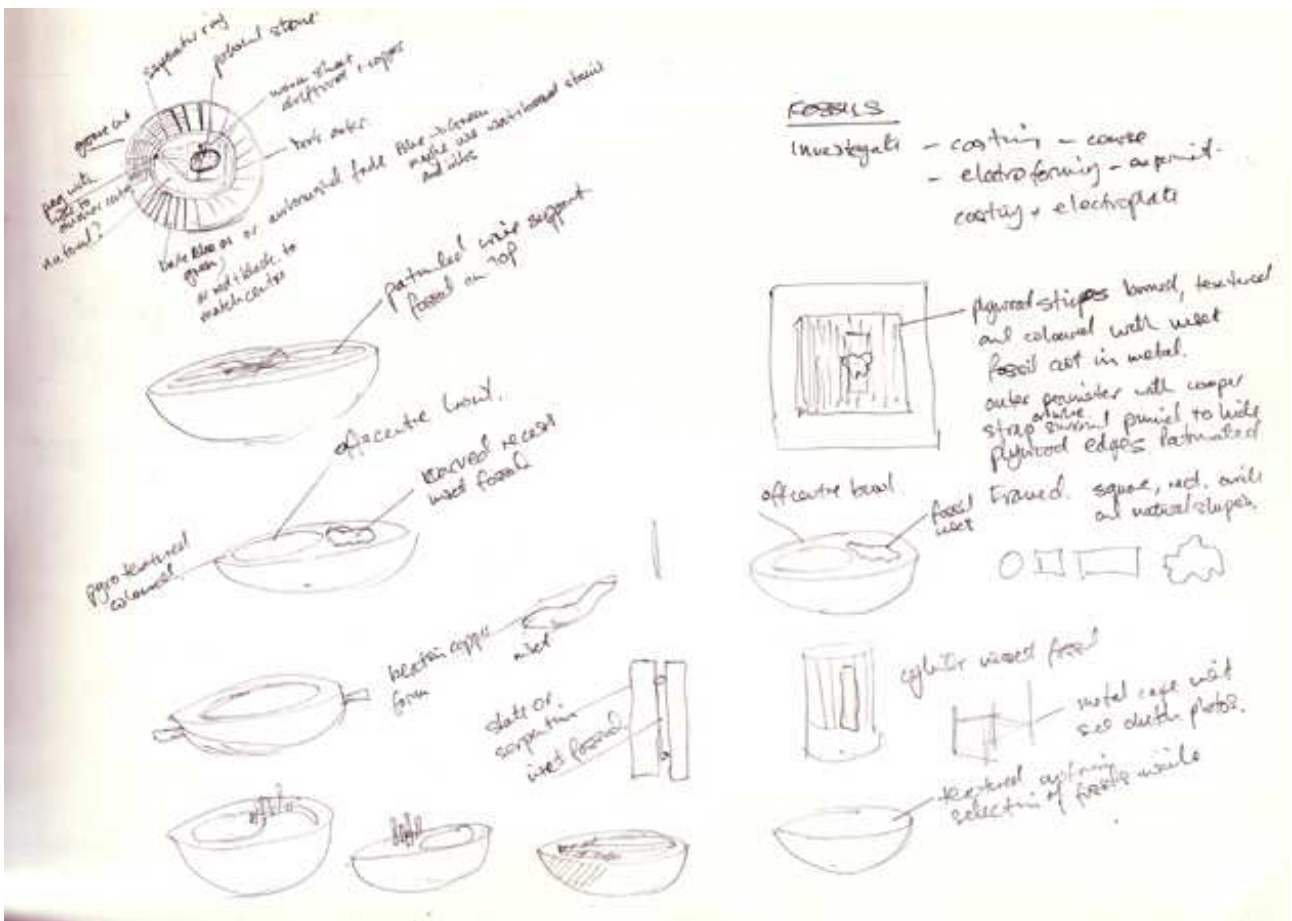 separate ring
polished stone
groove cut
worn sheet
driftwood + copper
dark outer.
peg with
natural?
fade Blue to Green
maybe use
and
Blue or
green
or red + black to
match centre
patinated wire support
fossil on top
off centre bowl.
carved recess
inset fossil
pyro textured
coloured.
beaten copper
form
inset
slate or
serpentine
inset fossil
FOSSILS
Investigate - casting - course
- electroforming - experiment.
casting + electroplate
plywood strips burned, textured
and coloured with inset
fossil cast in metal.
outer perimeter with copper
strap surround to hide
plywood edges patinated
Framed. square, rect. circle
and natural shapes.
off centre bowl.
fossil
inset
cylinder inset fossil
metal cage
see sketch photos.
textured
selection of fossils inside